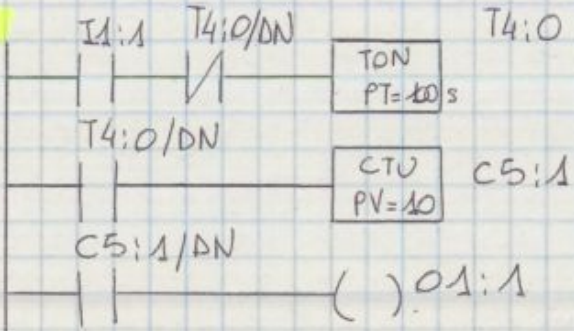 I1:1 T4:0/DN T4:0
TON
PT=100 s
T4:0/DN
CTU C5:1
PV=10
C5:1/DN
O1:1